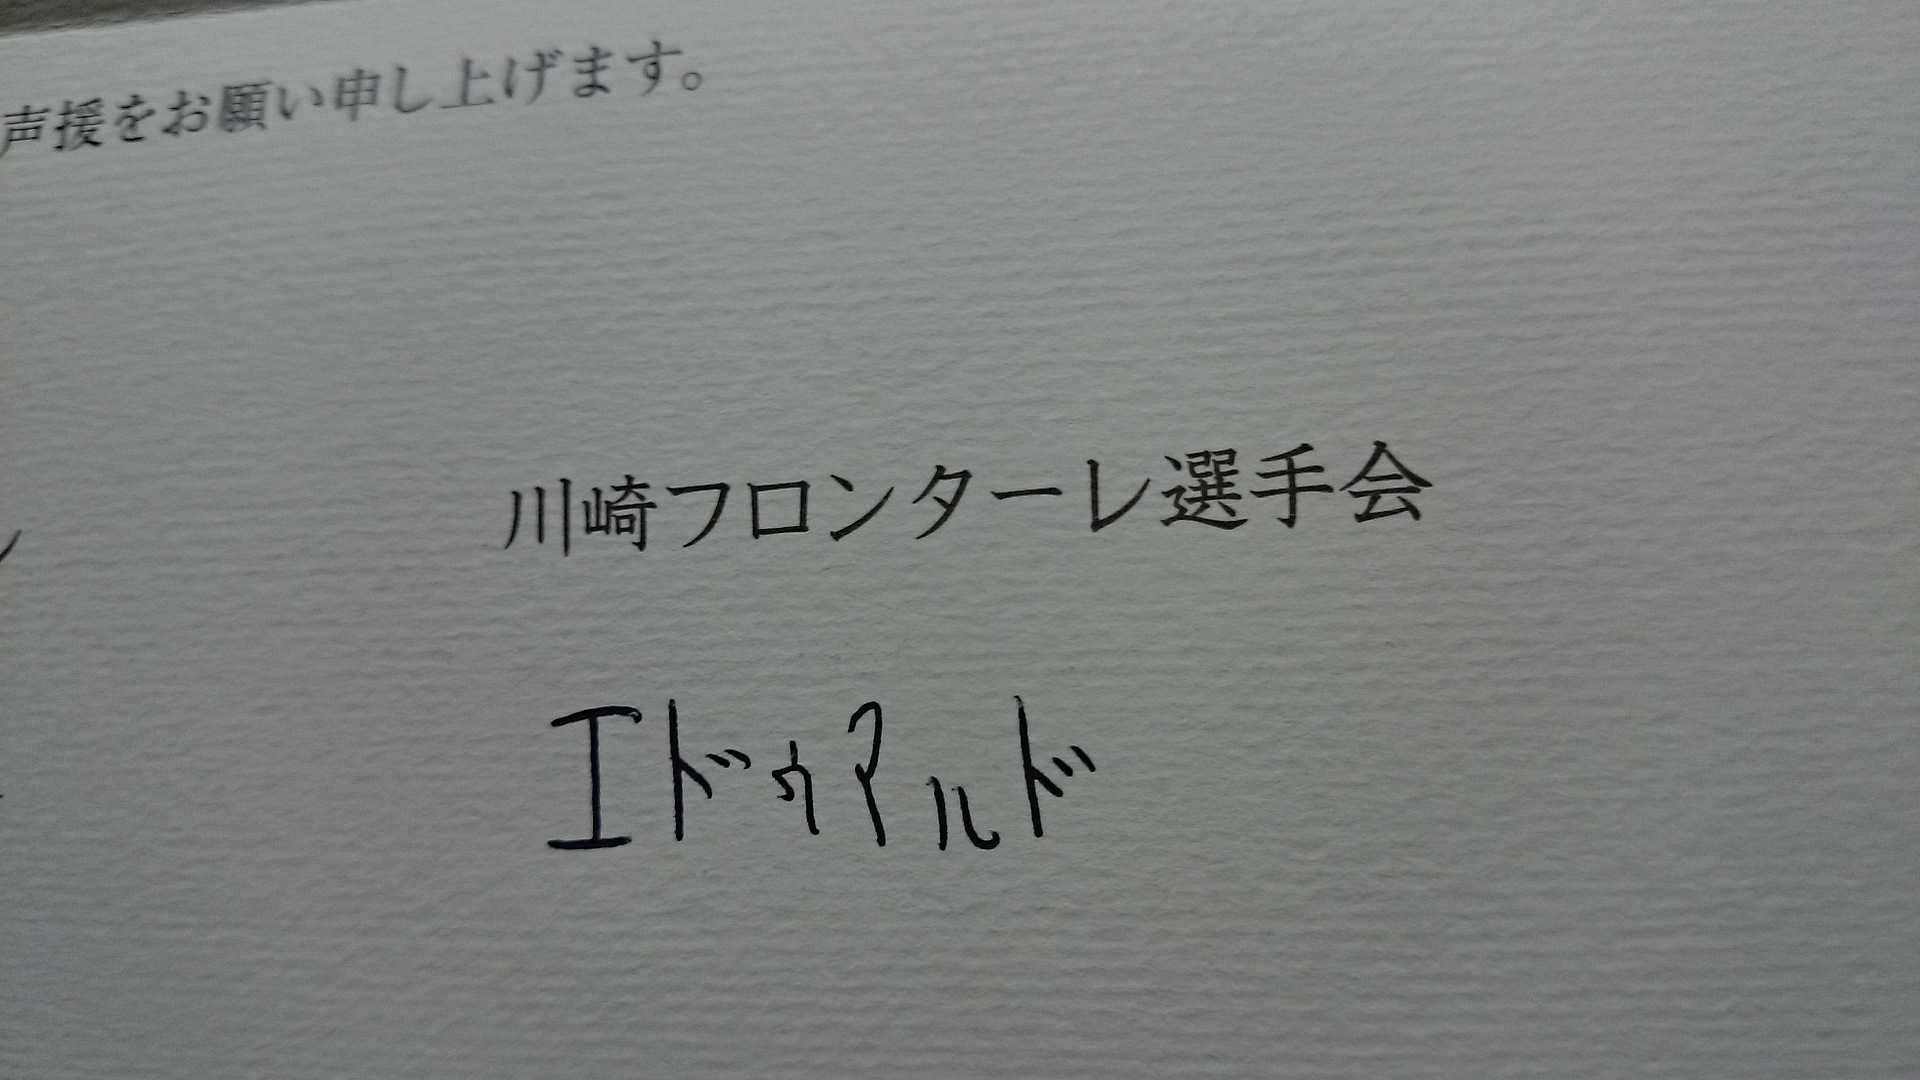 声援をお願い申し上げます。
川崎フロンターレ選手会
エドゥアルド